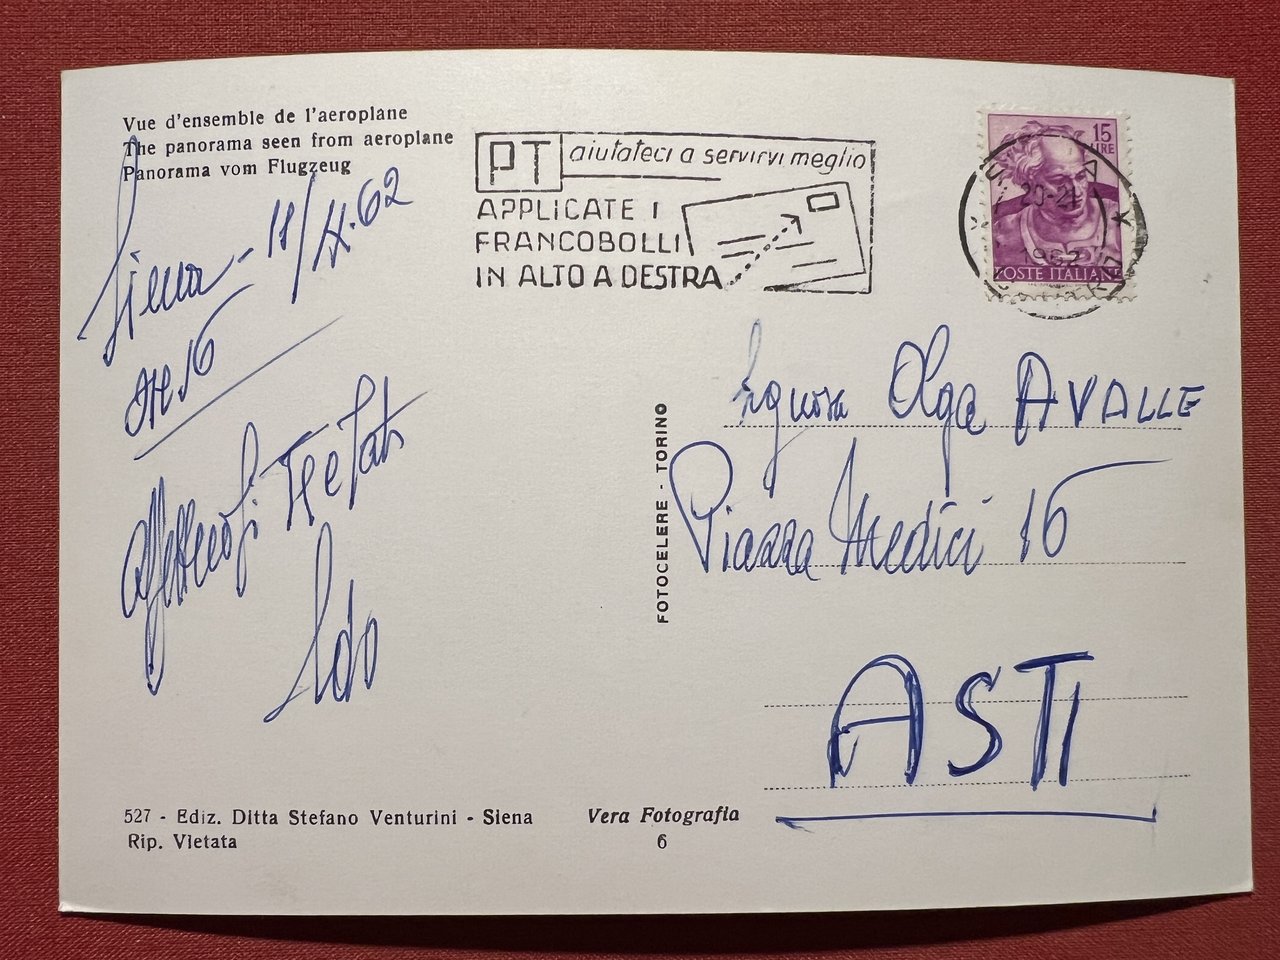 Vue d'ensemble de l'aeroplane
The panorama seen from aeroplane
Panorama vom Flugzeug
Siena - 18/4.62
ore 16
affettuosi
Aldo
PT aiutateci a servirvi meglio
APPLICATE I
FRANCOBOLLI
IN ALTO A DESTRA
15
LIRE
20-21
1962
POSTE ITALIANE
Signora Olga AVALLE
Piazza Medici 16
ASTI
FOTOCELERE - TORINO
527 - Ediz. Ditta Stefano Venturini - Siena
Rip. Vietata
Vera Fotografia
6